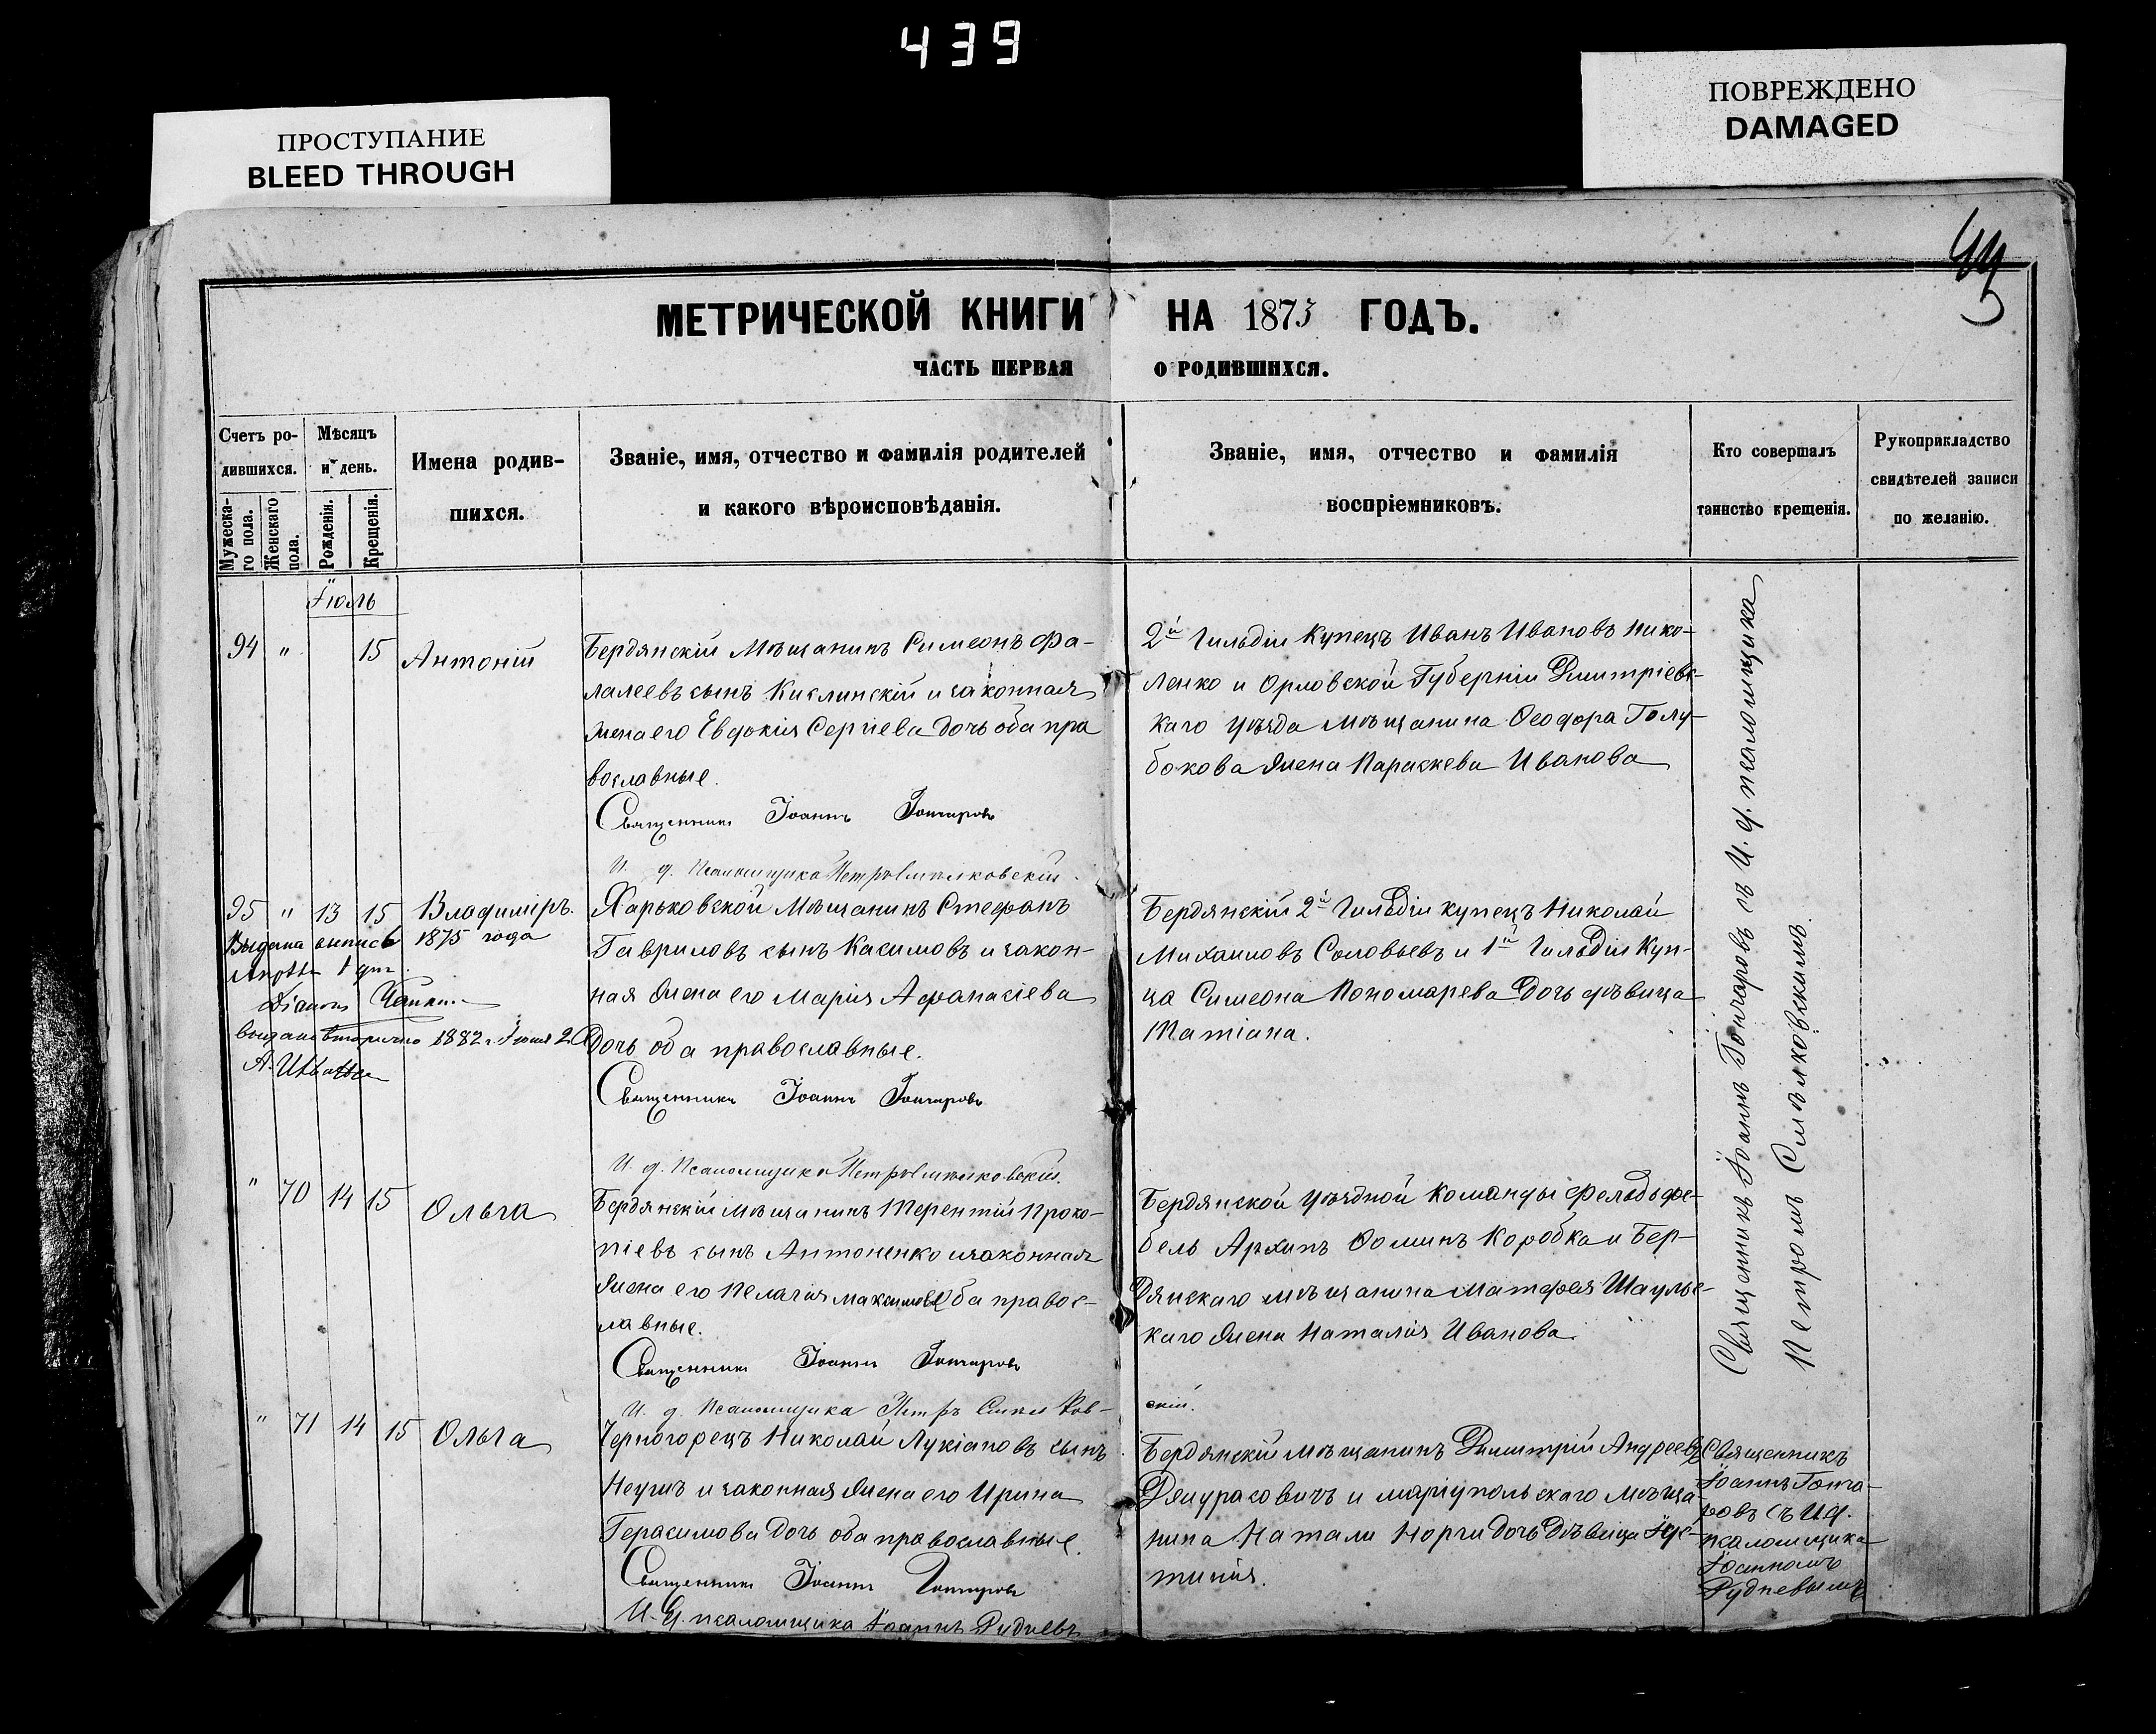 439
ПРОСТУПАНИЕ
BLEED THROUGH
ПОВРЕЖДЕНО
DAMAGED
МЕТРИЧЕСКОЙ КНИГИ НА 1873 ГОДЪ.
ЧАСТЬ ПЕРВАЯ О РОДИВШИХСЯ.
Счетъ ро-
дившихся.
Мужеска-
го пола.
Женскаго
пола.
Мѣсяцъ
и день.
Рожденія.
Крещенія.
Имена родив-
шихся.
Званіе, имя, отчество и фамилія родителей
и какого вѣроисповѣданія.
Званіе, имя, отчество и фамилія
воспріемниковъ.
Кто совершалъ
таинство крещенія.
Рукоприкладство
свидѣтелей записи
по желанію.
Іюль
94 " 15 Антоній
Бердянскій Мѣщанинъ Симеонъ Фа-
лалеевъ сынъ Кислинскій и законная
жена его Евдокія Сергіева дочь оба пра
вославные.
Священникъ Іоаннъ Гончаровъ
И. д. Псаломщика Петръ Смѣлковскій.
2й Гильдіи Купецъ Иванъ Ивановъ Нико-
ленко и Орловской Губерніи Димитріевс-
каго уѣзда мѣщанина Ѳеодора Голу-
бокова жена Параскева Иванова
95 " 13 15 Владиміръ.
Выдана выпись 1875 года
выдано вторично 1882 г. Іюня 2
Харьковской Мѣщанинъ Стефанъ
Гавриловъ сынъ Касимовъ и закон-
ная жена его Марія Афанасіева
Дочь оба православные.
Священникъ Іоаннъ Гончаровъ
И. д. Псаломщика Петръ Смѣлковскій.
Бердянскій 2й Гильдіи купецъ Николай
Михаиловъ Соловьевъ и 1й Гильдіи Куп-
ца Симеона Пономарева Дочь дѣвица
Татіана.
" 70 14 15 Ольга
Бердянскій мѣщанинъ Терентій Проко-
піевъ сынъ Антоненко и законная
жена его Пелагія Максимова оба правос-
лавные.
Священникъ Іоаннъ Гончаровъ
И. д. Псаломщика Петръ Смѣлков-
скій.
Бердянской уѣздной Команды Фельдфе-
бель Архипъ Ѳоминъ Коробка и Бер-
дянскаго мѣщанина Матфея Шаульс-
каго жена Наталія Иванова.
Священникъ Іоаннъ Гончаровъ съ И. д. псаломщика
Петромъ Смѣлковскимъ.
" 71 14 15 Ольга
Черногорецъ Николай Лукіановъ сынъ
и законная жена его Ирина
Герасимова Дочь оба православные.
Священникъ Іоаннъ Гончаровъ
И. д. псаломщика Іоаннъ Рудневъ
Бердянскій мѣщанинъ Димитрій Андреевъ
и маріупольскаго мѣща-
нина Натали Норги дочь Дѣвица Іус-
тинія.
Священникъ
Іоаннъ Гонча-
ровъ съ И д.
псаломщика
Іоанномъ
Рудневымъ